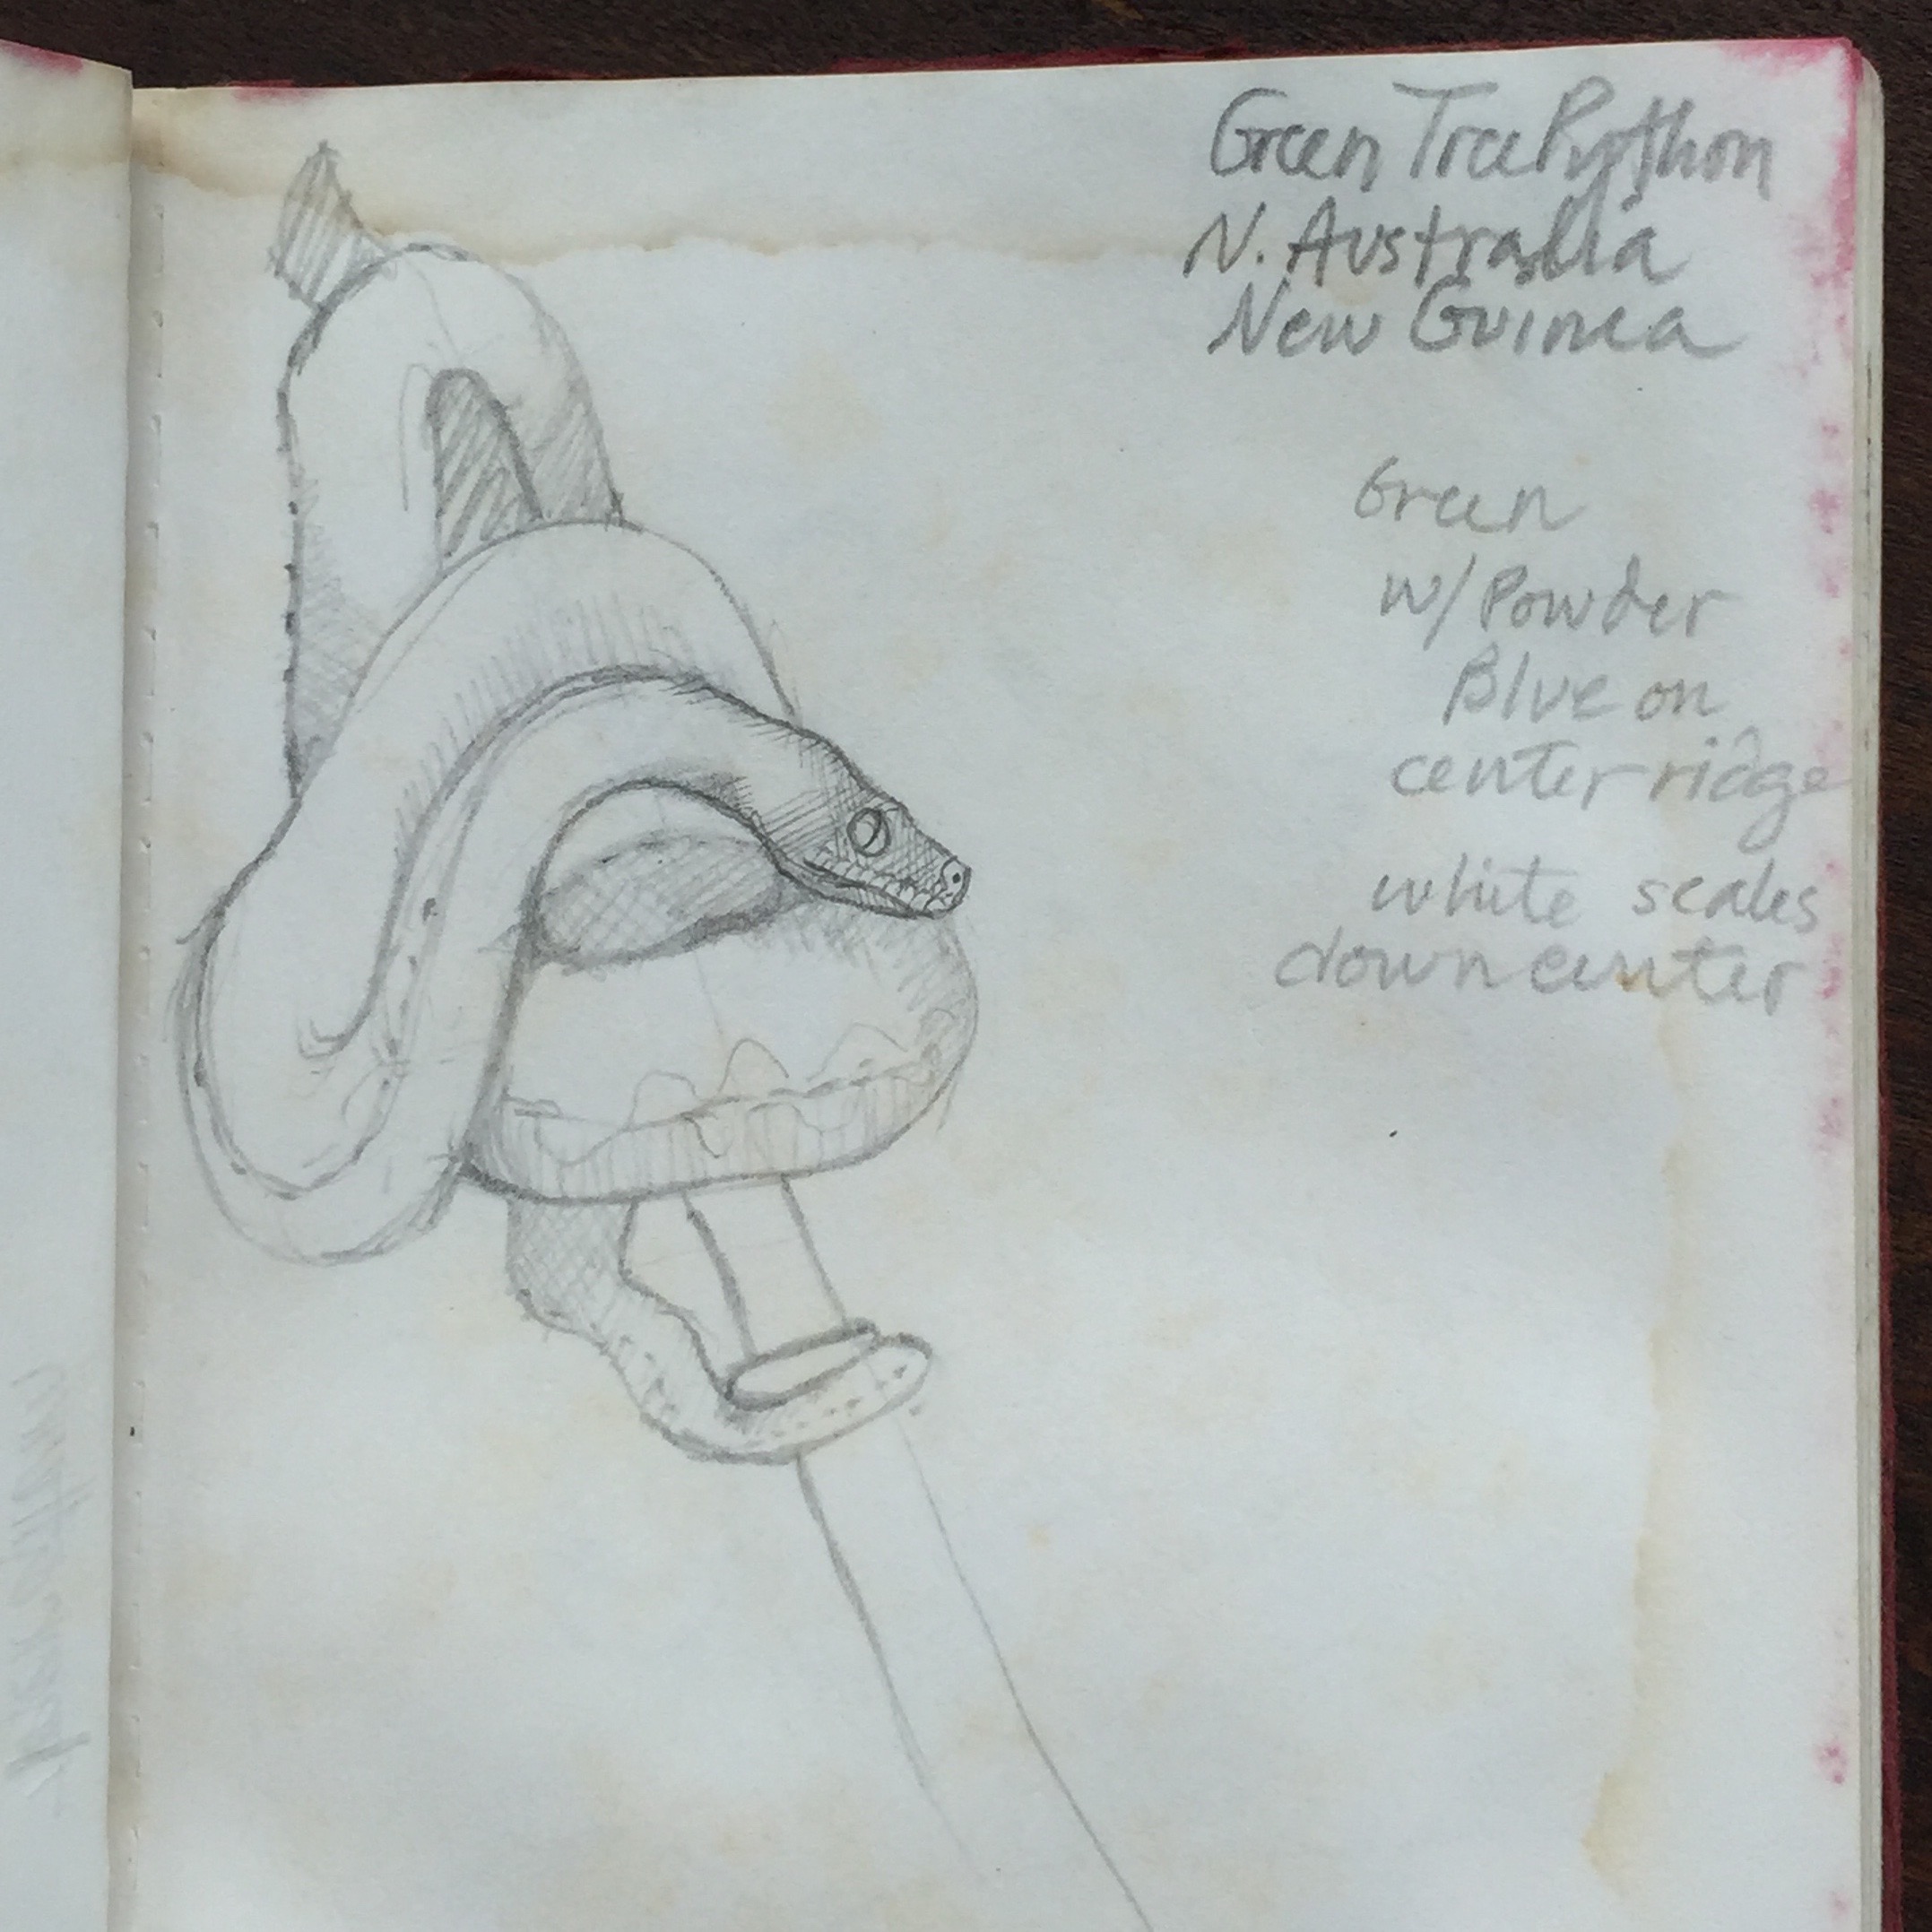 Green Tree Python
N. Australia
New Guinea
Green
w/ Powder
Blue on
center ridge
white scales
down center